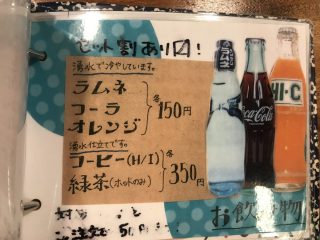 セット割あり〼!
湧水で冷やしています。
ラムネ
コーラ
オレンジ
各150円
湧水仕立てです。
コーヒー(H/I)
緑茶(ホットのみ)
各350円
お飲み物
ラムネ
Coca-Cola
HI-C